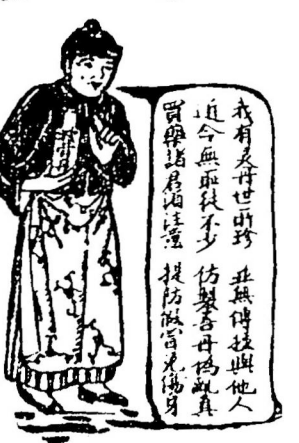 我有灵丹世所珍 並無傳授與他人
近今無耻徒不少 仿製吾丹偽亂真
買藥諸君須注意 提防假冒免傷身